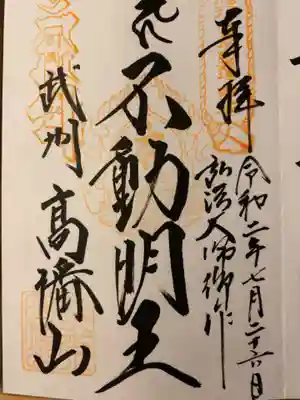 奉拝
令和二年七月二十六日
弘法大師御作
不動明王
武州 高幡山